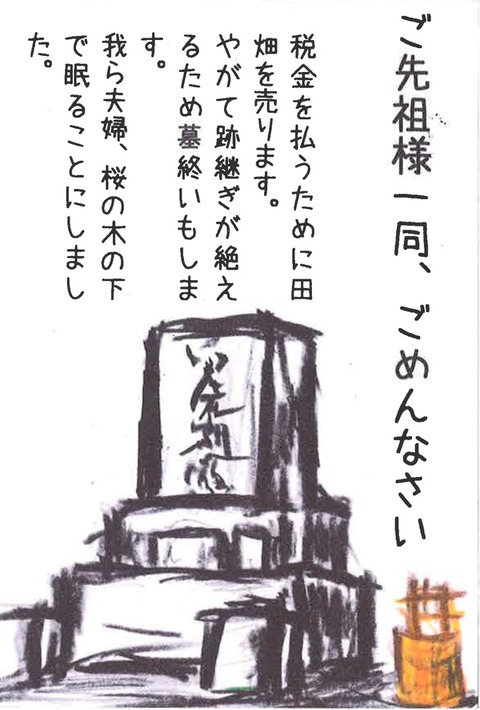 ご先祖様一同、ごめんなさい
税金を払うために田
畑を売ります。
やがて跡継ぎが絶え
るため墓終いもしま
す。
我ら夫婦、桜の木の下
で眠ることにしまし
た。
ご先祖様